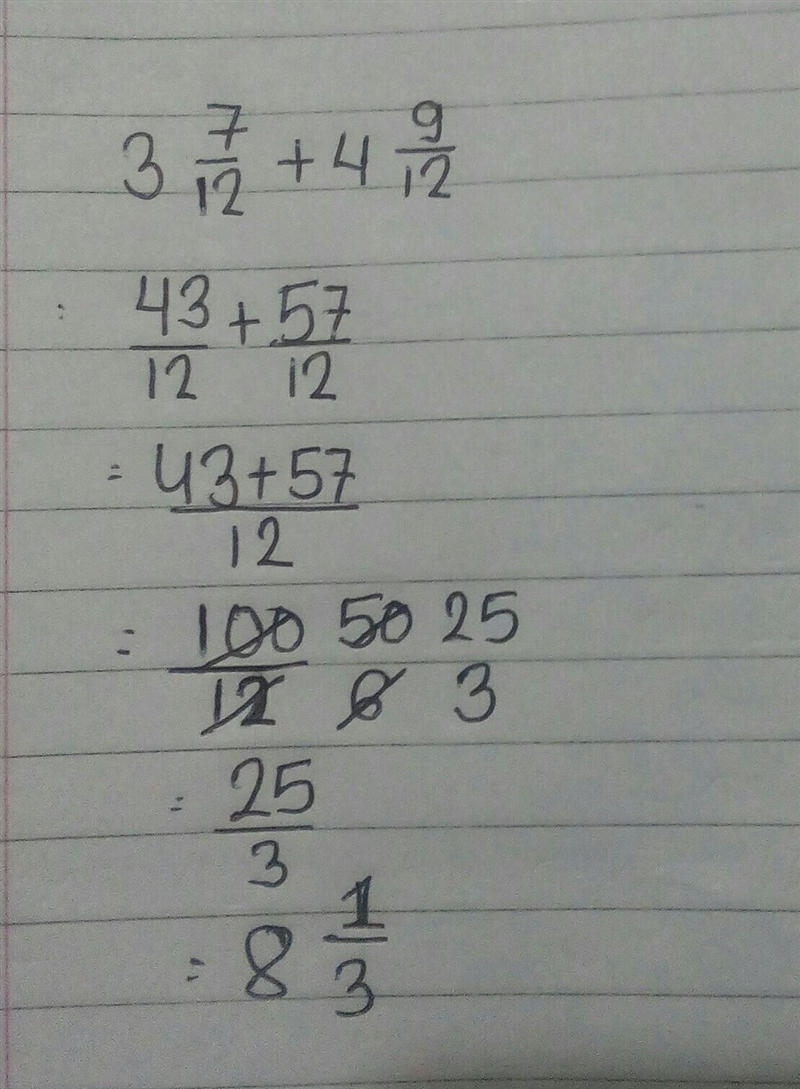 3 7/12 + 4 9/12
: 43/12 + 57/12
= 43+57/12
= 100/12 50/6 25/3
= 25/3
= 8 1/3